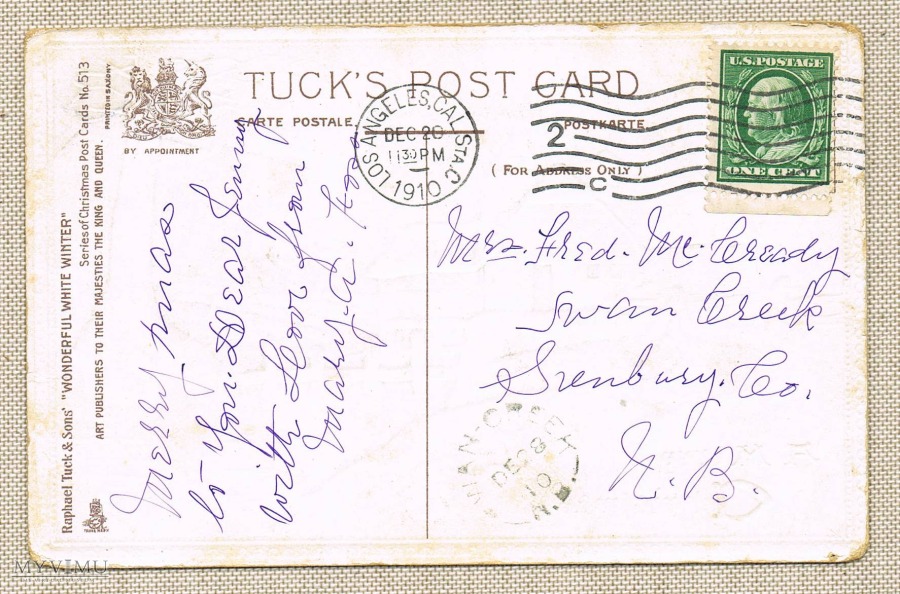 Raphael Tuck & Sons' "WONDERFUL WHITE WINTER"
Series of Christmas Post Cards No. 513
ART PUBLISHERS TO THEIR MAJESTIES THE KING AND QUEEN.
PRINTED IN SAXONY
BY APPOINTMENT
TUCK'S POST CARD
CARTE POSTALE
POSTKARTE
(FOR ADDRESS ONLY)
LOS ANGELES, CAL. STA. C.
DEC 20
11 30 PM
1910
2
C
U.S. POSTAGE
ONE CENT
Merry Xmas
to You. Dear Jenny
with Love from
Mary. A.
Mrs. Fred. Mc. Cready
Swan Creek
Sunbury. Co.
N. B.
SWAN CREEK
DE 28
10
N.B.
MYVIMU